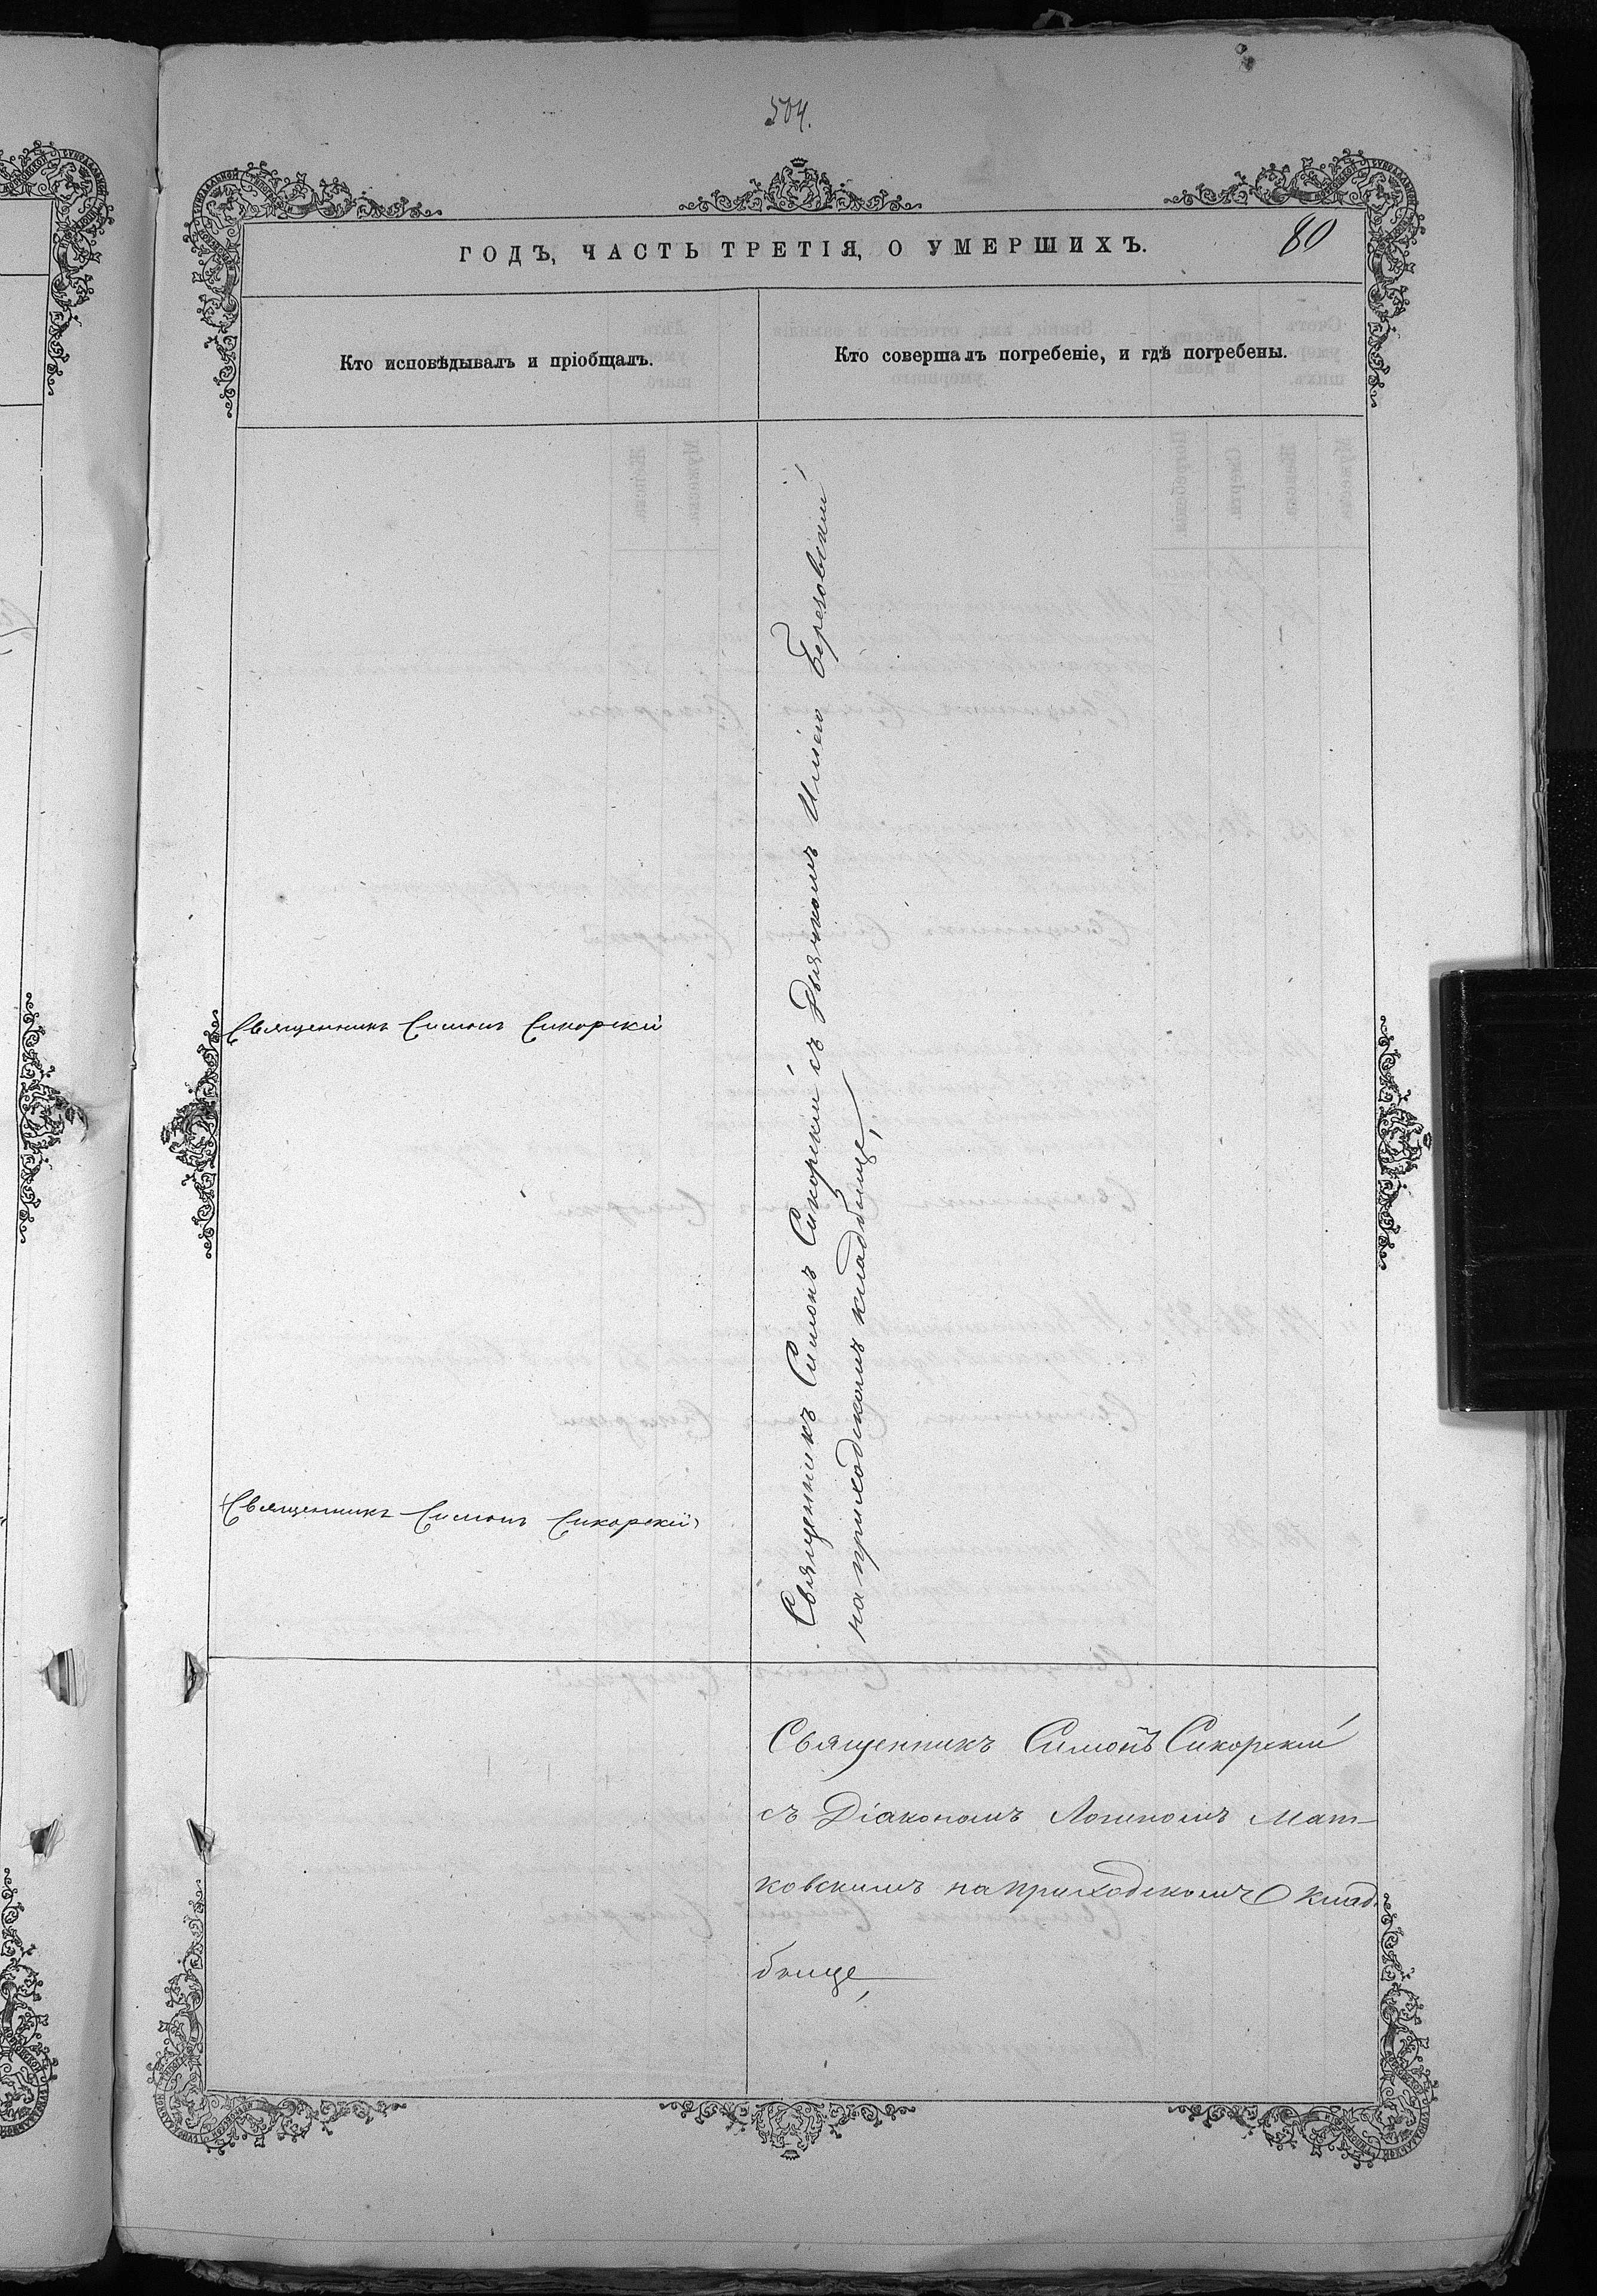 504.
80
ГОДЪ, ЧАСТЬ ТРЕТІЯ, О УМЕРШИХЪ.
Кто исповѣдывалъ и пріобщалъ.
Кто совершалъ погребеніе, и гдѣ погребены.
Священникъ Симонъ Сикорскій
Священникъ Симонъ Сикорскій
Священникъ Симонъ Сикорскій съ Дьячкомъ Иліею Березовскій
на приходскомъ кладбище,
Священникъ Симонъ Сикорскій
съ Діакономъ Логиномъ Мат-
ковскимъ на приходскомъ клад-
бище,